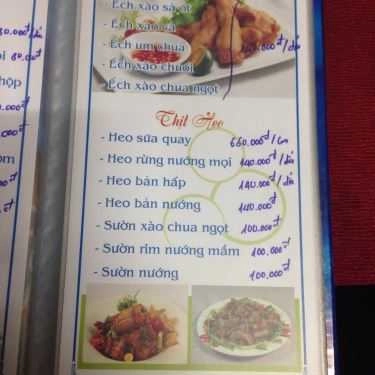 - Ếch xào sả ớt
- Ếch xào cà
- Ếch um chua
- Ếch xào chuối
- Ếch xào chua ngọt
Thịt Heo
- Heo sữa quay 660.000đ/con
- Heo rừng nướng mọi 140.000đ/dĩa
- Heo bản hấp 140.000đ/dĩa
- Heo bản nướng 140.000đ
- Sườn xào chua ngọt 100.000đ
- Sườn rim nướng mắm 100.000đ
- Sườn nướng 100.000đ